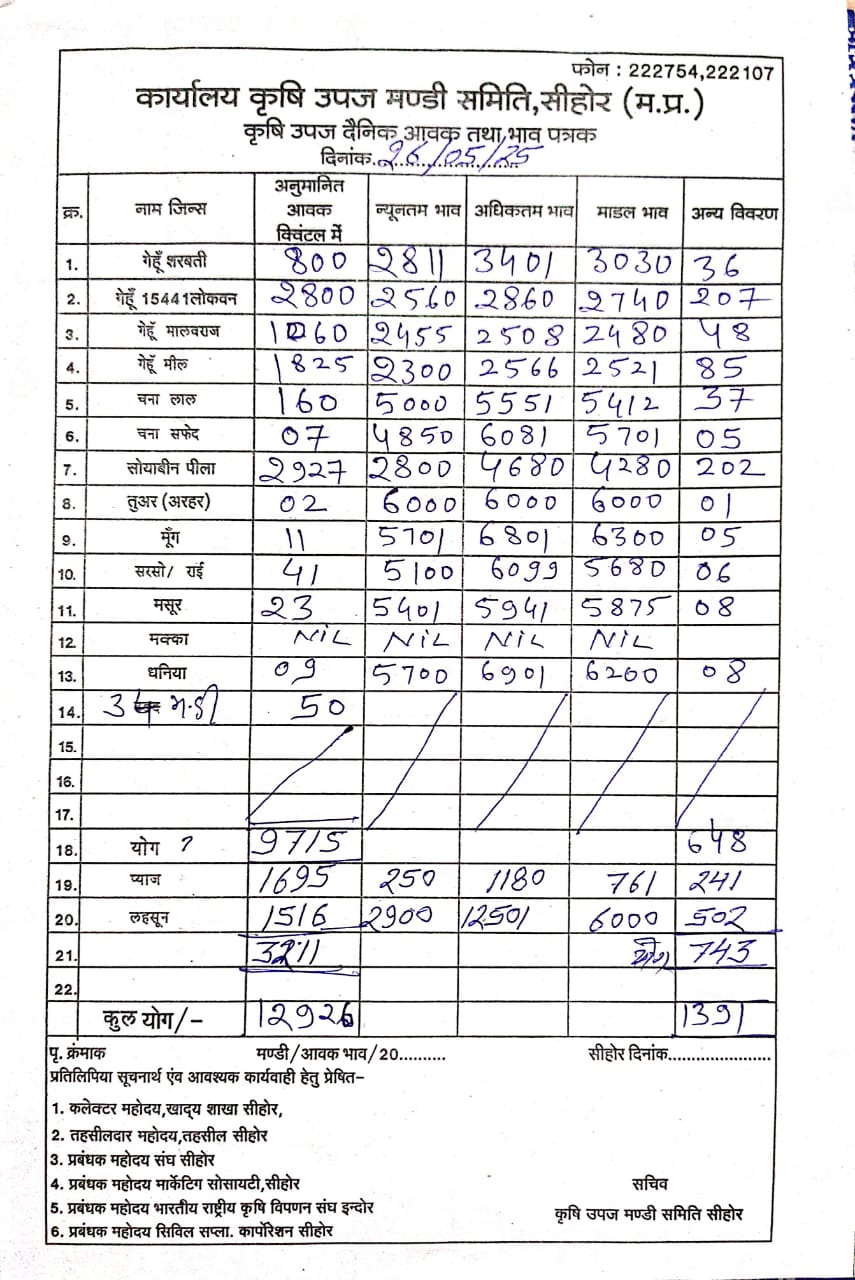 फोन : 222754,222107
कार्यालय कृषि उपज मण्डी समिति,सीहोर (म.प्र.)
कृषि उपज दैनिक आवक तथा,भाव पत्रक
दिनांक. 26/05/25
क्र. नाम जिन्स अनुमानित आवक क्विंटल में न्यूनतम भाव अधिकतम भाव माडल भाव अन्य विवरण
1. गेहूँ शरबती 800 2811 3401 3030 36
2. गेहूँ 15441लोकवन 2800 2560 2860 2740 207
3. गेहूँ मालवराज 2455 2508 2480 48
4. गेहूँ मील 1825 2300 2566 2521 85
5. चना लाल 160 5000 5551 5412 37
6. चना सफेद 07 4850 6081 5701 05
7. सोयाबीन पीला 2927 2800 4680 4280 202
8. तुअर (अरहर) 02 6000 6000 6000 01
9. मूँग 11 5701 6801 6300 05
10. सरसो/ राई 41 5100 6099 5680 06
11. मसूर 23 5401 5941 5875 08
12. मक्का NIL NIL NIL NIL
13. धनिया 09 5700 6901 6200 08
14. मण्डी 50
15.
16.
17.
18. योग ? 9715 648
19. प्याज 1695 250 1180 761 241
20. लहसून 1516 2900 12501 6000 502
21. 3211 योग 743
22.
कुल योग/- 12926 1391
पृ. क्रंमाक मण्डी/आवक भाव/20.......... सीहोर दिनांक.......................
प्रतिलिपिया सूचनार्थ एंव आवश्यक कार्यवाही हेतु प्रेषित-
1. कलेक्टर महोदय,खाद्य शाखा सीहोर,
2. तहसीलदार महोदय,तहसील सीहोर
3. प्रबंधक महोदय संघ सीहोर
4. प्रबंधक महोदय मार्केटिग सोसायटी,सीहोर सचिव
5. प्रबंधक महोदय भारतीय राष्ट्रीय कृषि विपणन संघ इन्दोर कृषि उपज मण्डी समिति सीहोर
6. प्रबंधक महोदय सिविल सप्ला. कार्पोरेशन सीहोर